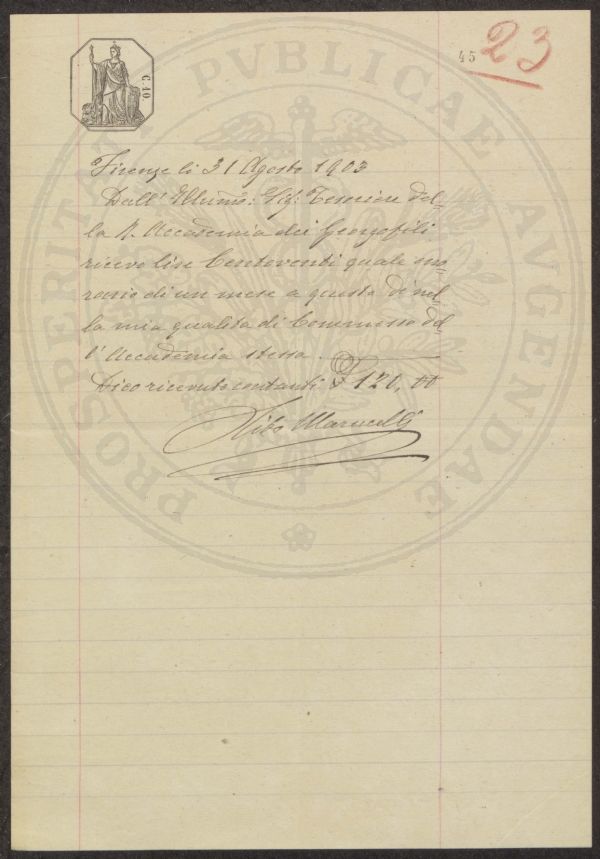 C. 10
45
23
PROSPERITATI PVBLICAE AVGENDAE
Firenze li 31 Agosto 1903
Dall' Illumo: Sig: Tesoriere del-
la R. Accademia dei Georgofili
ricevo lire Centoventi quale ono-
rario di un mese a questo dì nel-
la mia qualità di Commesso del-
l' Accademia stessa.
Dico ricevuto contanti £ 120,00
Marucelli